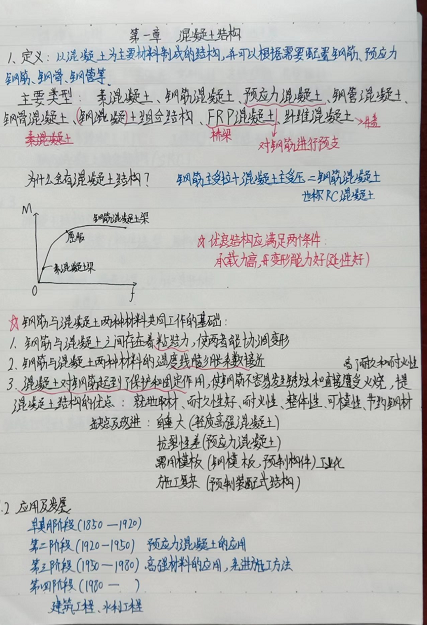 第一章 混凝土结构
1. 定义：以混凝土为主要材料制成的结构，并可以根据需要配置钢筋、预应力
钢筋、钢骨、钢管等.
主要类型：素混凝土、钢筋混凝土、预应力混凝土、钢管混凝土、
钢骨混凝土、(钢混凝土)组合结构、FRP混凝土、纤维混凝土
素混凝土 桥梁 对钢筋进行预支
为什么会有混凝土结构？ 钢筋主受拉+混凝土主受压=钢筋混凝土
也称RC混凝土
M
钢筋混凝土梁
屈服
素混凝土梁
0 f
☆优良结构应满足两个条件：
承载力高，变形能力好(延性好)
☆钢筋与混凝土两种材料共同工作的基础：
1. 钢筋与混凝土之间存在着粘结力，使两者能协调变形
2. 钢筋与混凝土两种材料的温度线膨胀系数接近
3. 混凝土对钢筋起到了保护和固定作用，使钢筋不容易发生锈蚀和直接遭受火烧，提
高了耐久和耐火性
混凝土结构的优点：就地取材、耐久性好、耐火性、整体性、可模性、节约钢材
缺点及改进：自重大(轻度高强混凝土)
抗裂性差(预应力混凝土)
需用模板(钢模板，预制构件)工业化
施工复杂(预制装配式结构)
.2 应用及发展
早期阶段(1850—1920)
第二阶段(1920-1950) 预应力混凝土的应用
第三阶段(1950—1980) 高强材料的应用，先进施工方法
第四阶段(1980— )
建筑工程、水利工程